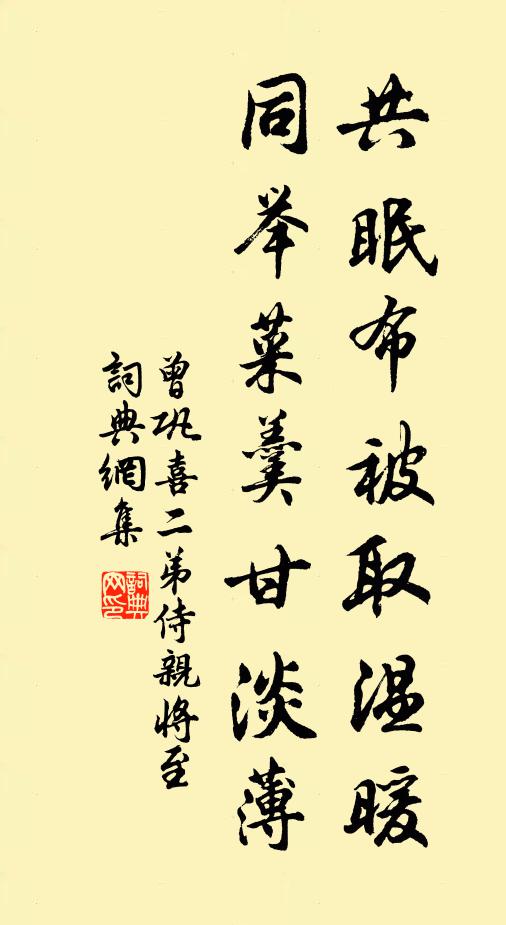 共眠布被取温暖
同举菜羹甘淡薄
曾巩喜二弟侍親將至
詞典網集
詞典网印